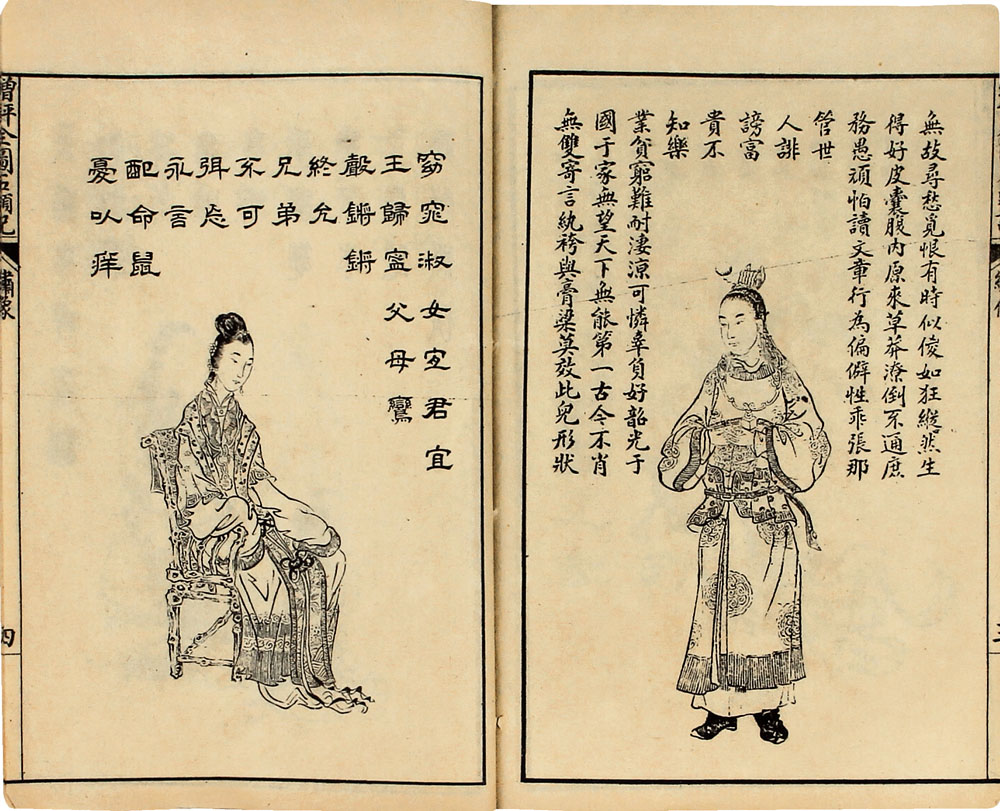 無故尋愁覓恨有時似傻如狂縱然生
得好皮囊腹內原來草莽潦倒不通庶
務愚頑怕讀文章行為偏僻性乖張那
管世
人誹
謗富
貴不
知樂
業貧窮難耐淒涼可憐辜負好韶光于
國于家無望天下無能第一古今不肖
無雙寄言紈袴與膏粱莫效此兒形狀
窈窕淑女宜君宜
王歸寧父母鸞
聲鏘鏘
終允
兄弟
不可
弭忘
永言
配命鼠
憂以痒
增評全圖石頭記 繡像 四